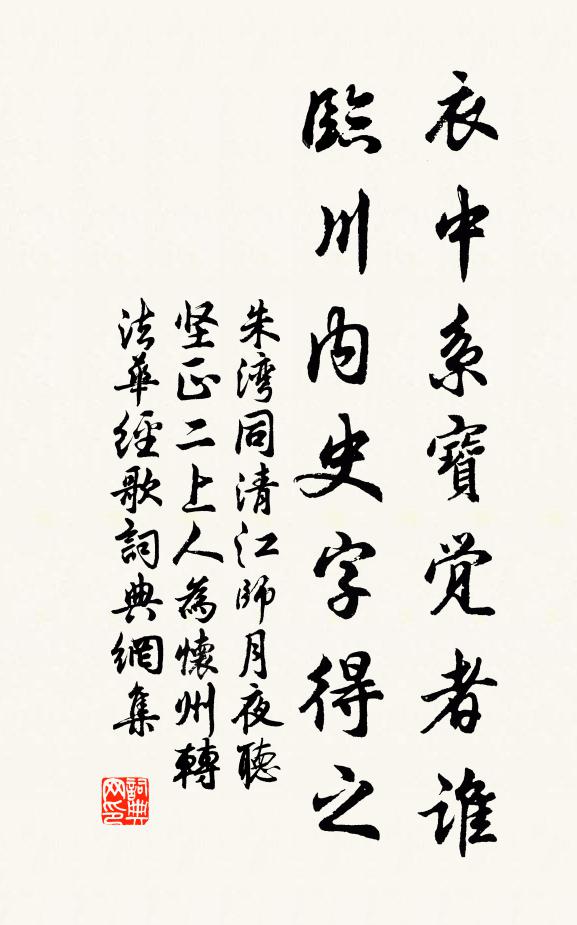 衣中系寶覚者誰
臨川内史字得之
朱湾同清江師月夜聴
坚正二上人為懷州轉
法華經歌詞典網集
詞典
网印